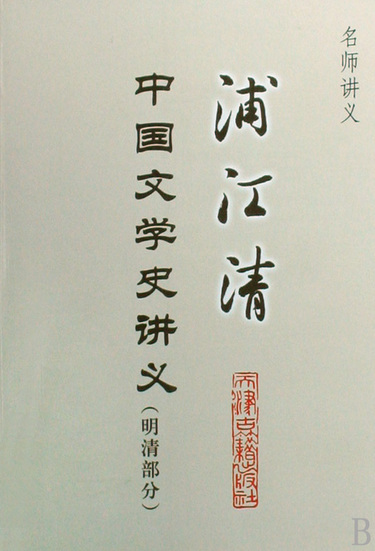 名师讲义
浦江清
中国文学史讲义(明清部分)
天津古籍出版社
B